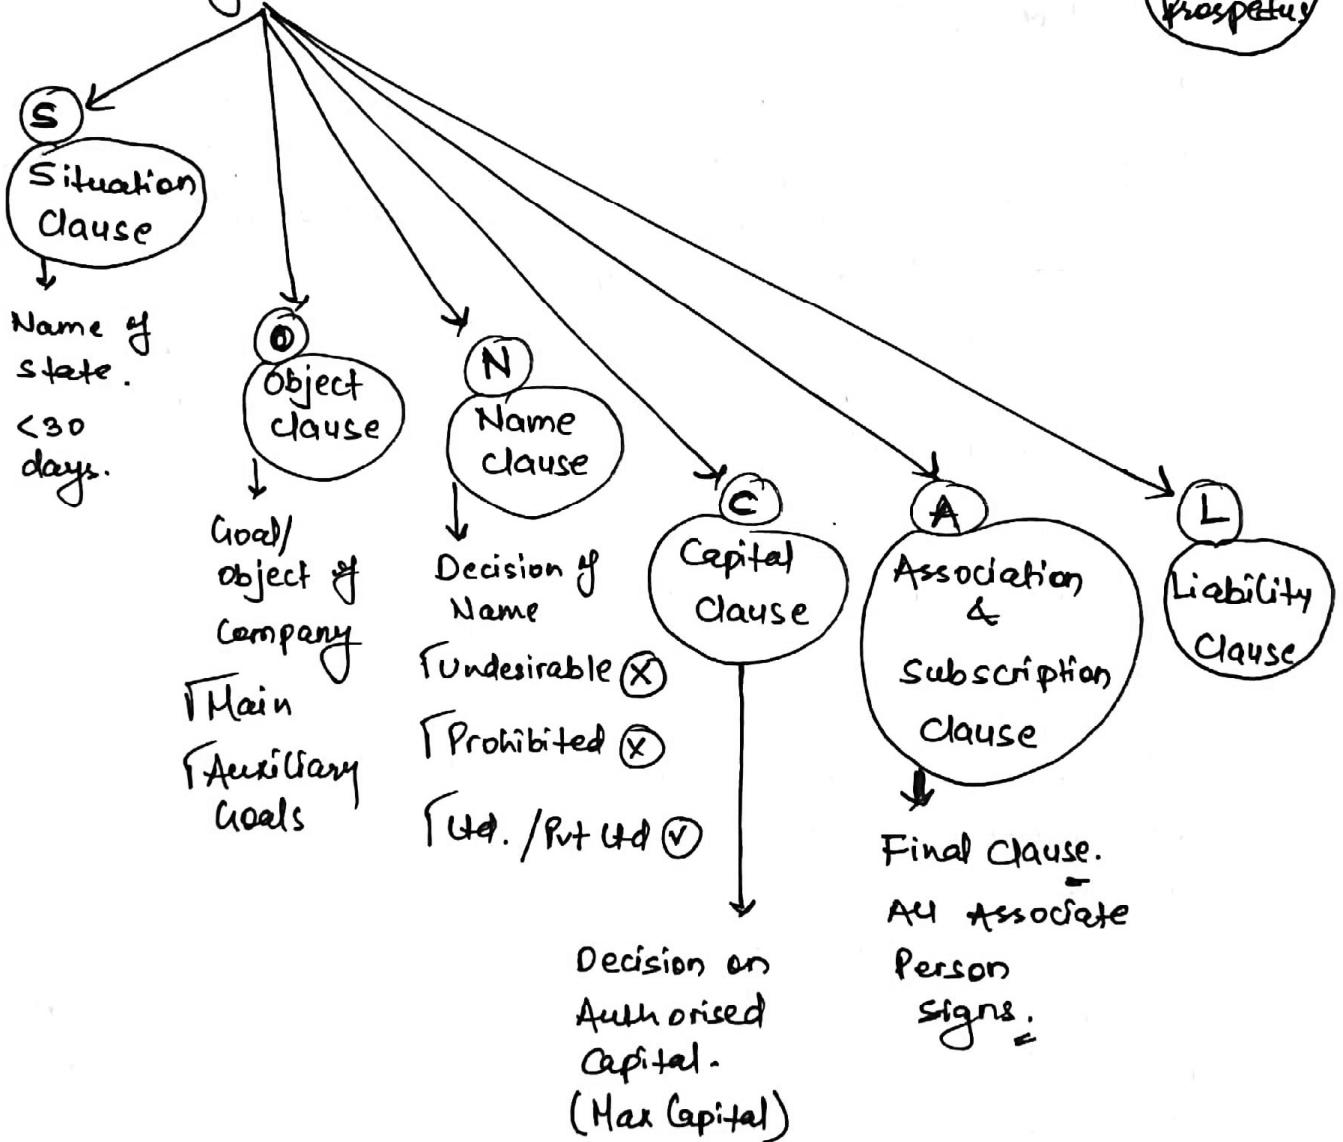 Prospetus
S
Situation
Clause
Name of
state.
<30
days.
O
Object
clause
Goal/
object of
Company
Main
Auxiliary
Goals
N
Name
clause
Decision of
Name
Undesirable X
Prohibited X
Ltd. / Pvt Ltd ✓
C
Capital
Clause
Decision on
Authorised
Capital.
(Max Capital)
A
Association
&
Subscription
Clause
Final Clause.
All Associate
Person
signs.
L
Liability
Clause